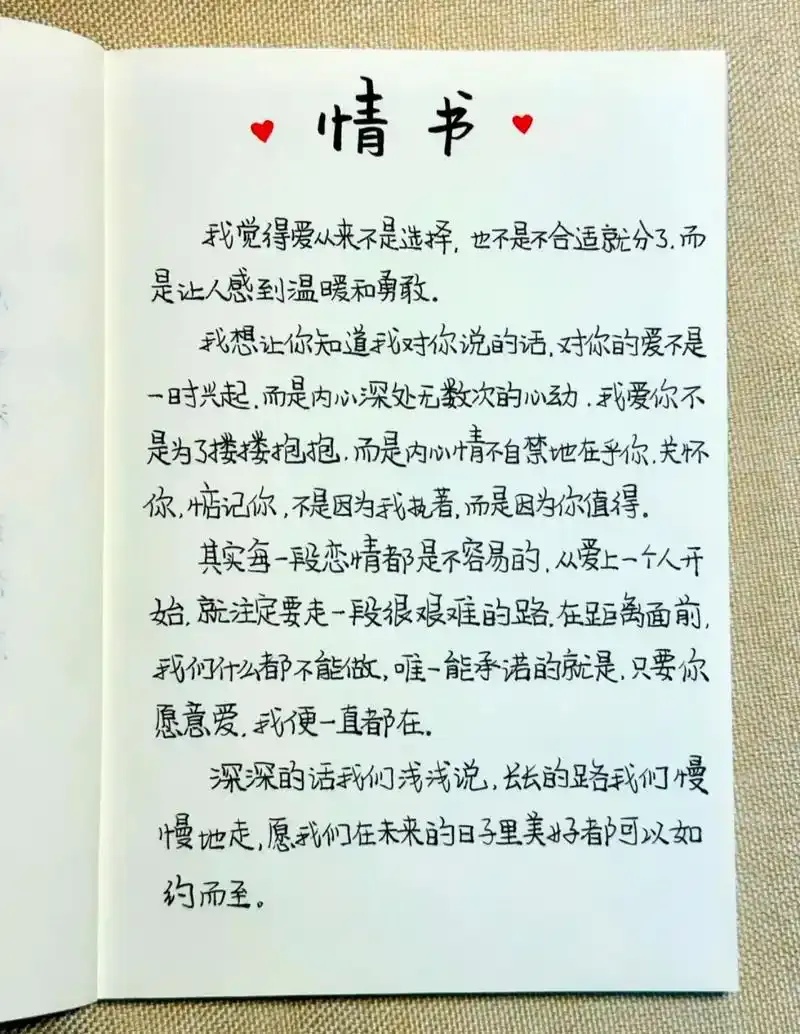 情书
我觉得爱从来不是选择,也不是不合适就分了.而
是让人感到温暖和勇敢。
我想让你知道我对你说的话.对你的爱不是
一时兴起.而是内心深处无数次的心动.我爱你不
是为了搂搂抱抱.而是内心情不自禁地在乎你.关怀
你,惦记你,不是因为我执著,而是因为你值得。
其实每一段恋情都是不容易的.从爱上一个人开
始.就注定要走一段很艰难的路.在距离面前,
我们什么都不能做,唯一能承诺的就是.只要你
愿意爱,我便一直都在。
深深的话我们浅浅说,长长的路我们慢
慢地走,愿我们在未来的日子里美好都可以如
约而至。